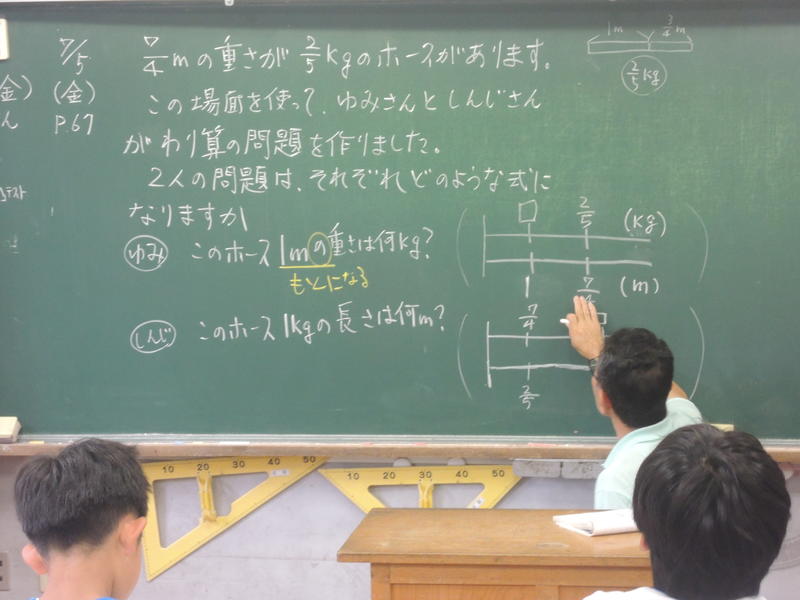 7/5
(金)
P.67
金)
ん
テスト
7/4mの重さが 2/5kgのホースがあります。
この場面を使って、ゆみさんとしんじさん
がわり算の問題を作りました。
2人の問題は、それぞれどのような式に
なりますか
ゆみ このホース1mの重さは何kg?
もとになる
しんじ このホース1kgの長さは何m?
1m 3/4m
2/5kg
□ 2/5 (kg)
1 7/4 (m)
7/4 □
2/5
10 20 30 40 50
10 20 30 40 50